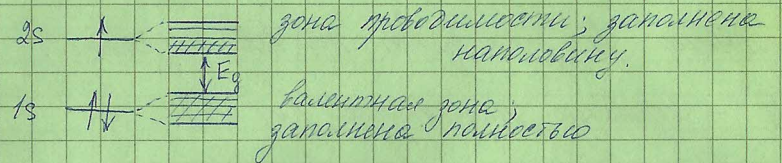 2s зона проводимости; заполнена
наполовину.
Eg
1s валентная зона;
заполнена полностью